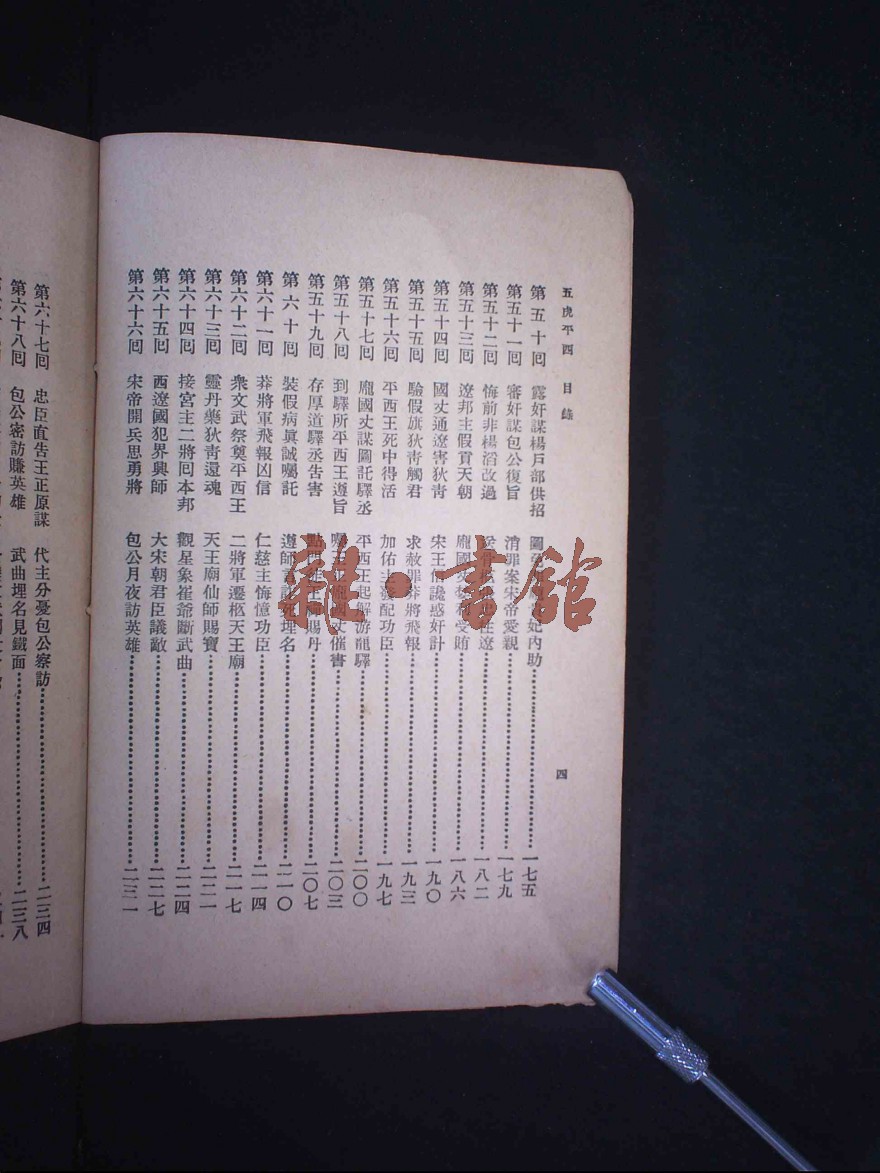 五虎平西 目錄
四
第五十回 露奸謀楊戶部供招 圖 妃內助 一七五
第五十一回 審奸謀包公復旨 清罪案宋帝愛親 一七九
第五十二回 悔前非楊滔改過 遼 一八二
第五十三回 遼邦主假貢天朝 龐國丈 受賄 一八六
第五十四回 國丈通遼害狄靑 宋王信讒惑奸計 一九〇
第五十五回 驗假旗狄靑觸君 求赦罪莽將飛報 一九三
第五十六回 平西王死中得活 加佑主發配功臣 一九七
第五十七回 龐國丈謀圖託驛丞 平西王起解游龍驛 二〇〇
第五十八回 到驛所平西王遵旨 國丈催書 二〇三
第五十九回 存厚道驛丞吿害 賜丹 二〇七
第六十回 裝假病眞誠囑託 遵師言詐死埋名 二一〇
第六十一回 莽將軍飛報凶信 仁慈主悔憶功臣 二一四
第六十二回 衆文武祭奠平西王 二將軍遷柩天王廟 二一七
第六十三回 靈丹藥狄靑還魂 天王廟仙師賜寶 二二一
第六十四回 接宮主二將回本邦 觀星象崔爺斷武曲 二二四
第六十五回 西遼國犯界興師 大宋朝君臣議敵 二二七
第六十六回 宋帝開兵思勇將 包公月夜訪英雄 二三一
第六十七回 忠臣直吿王正原謀 代主分憂包公察訪 二三四
第六十八回 包公密訪賺英雄 武曲埋名見鐵面 二三八
雜·書館